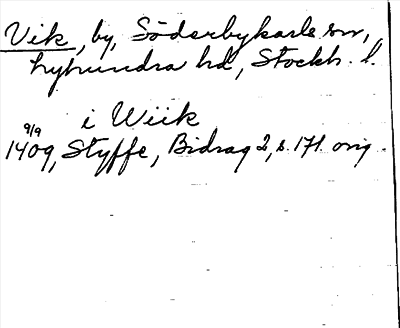 Vik, by, Söderbykarls sn,
Lyhundra hd, Stockh. l.
i Wiik
9/9
1409, Styffe, Bidrag 2, s. 171. orig.